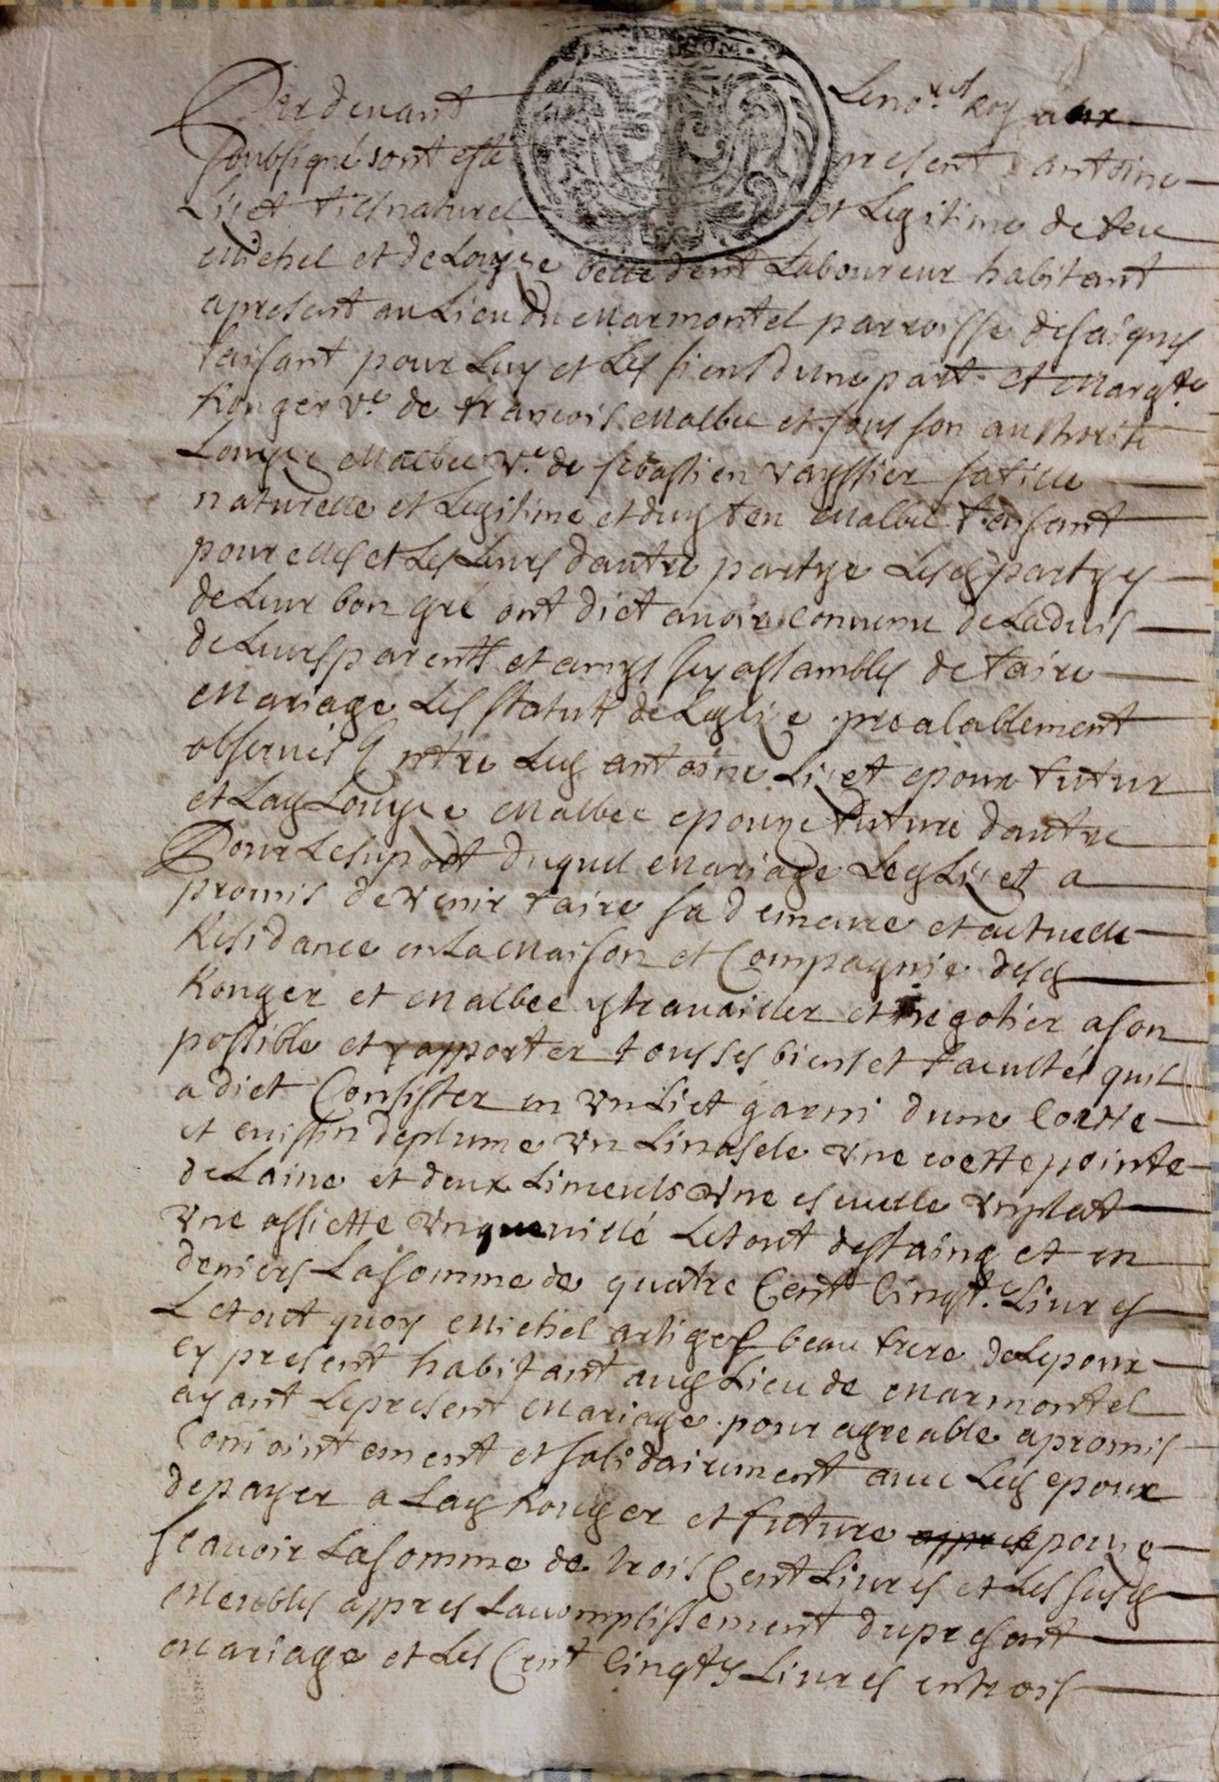 Pardevant Le no.re Royal
soubsigné sont esté present antoine
Lizet fils naturel et Legitime de feu
Michel et de Louyze dent Laboureur habitant
apresent au Lieu du Marmontel parroisse de saigues
faisant pour Luy et Les siens dune part et Margte
Rouger ve. de francois Malbec et sous son authorité
Louyze Malbec ve. de sebastien vayssier sa fille
naturelle et Legitime et dud feu Malbec faisant
pour elles et Les Leurs dautre partye Lesd partyes
de Leur bon gré ont dict avoir convenu de Ladvis
de Leurs parents et amys sy assamblés de faire
Mariage Les statuts de Leglize prealablement
observés Entre Led antoine Lizet epoux futur
et Lad Louyze Malbec epouze future dautre
Pour Le suport duquel Mariage Led Lizet a
promis de venir faire sa demeure et actuelle
Residance en La Maison et Compagnie desd
Rouger et Malbec y travailler et negotier a son
possible et y apporter tous ses biens et facultés quil
a dict Consister en un Lict garni dune Coette
et cuissin de plume un Linasele une coette pointe
de Laine et deux Linceuls une escuelle un plat
une assiette un Le tout destaing et en
deniers La somme de quatre Cent Cinqte Livres
Le tout quoy Michel artiges beau frere de Lepoux
cy present habitant aud Lieu de Marmontel
ayant Le present Mariage pour agreable a promis
Conjointement et solidairement avec Led epoux
de payer a Lad Rouger et future epouze
scavoir La somme de trois Cent Livres et Les susd
Meubles appres Lacomplissement du present
Mariage et Les Cent Cinqte Livres en trois